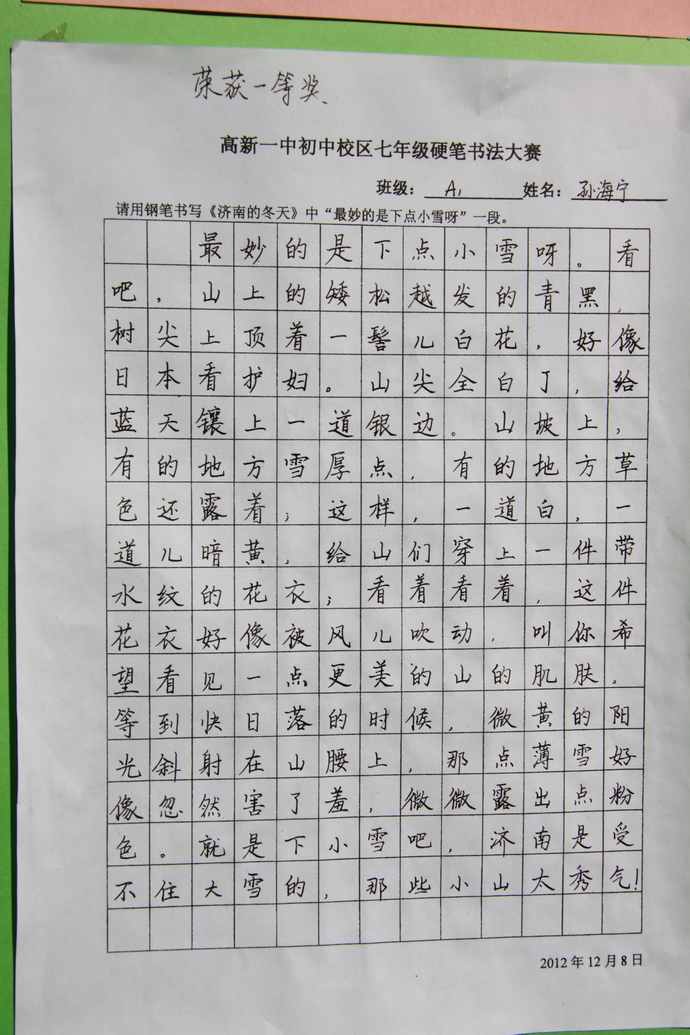 荣获一等奖
高新一中初中校区七年级硬笔书法大赛
班级：A1 姓名：孙海宁
请用钢笔书写《济南的冬天》中“最妙的是下点小雪呀”一段。
最妙的是下点小雪呀。看
吧，山上的矮松越发的青黑，
树尖上顶着一髻儿白花，好像
日本看护妇。山尖全白了，给
蓝天镶上一道银边。山坡上，
有的地方雪厚点，有的地方草
色还露着；这样，一道白，一
道儿暗黄，给山们穿上一件带
水纹的花衣；看着看着，这件
花衣好像被风儿吹动，叫你希
望看见一点更美的山的肌肤。
等到快日落的时候，微黄的阳
光斜射在山腰上，那点薄雪好
像忽然害了羞，微微露出点粉
色。就是下小雪吧，济南是受
不住大雪的，那些小山太秀气！
2012年12月8日